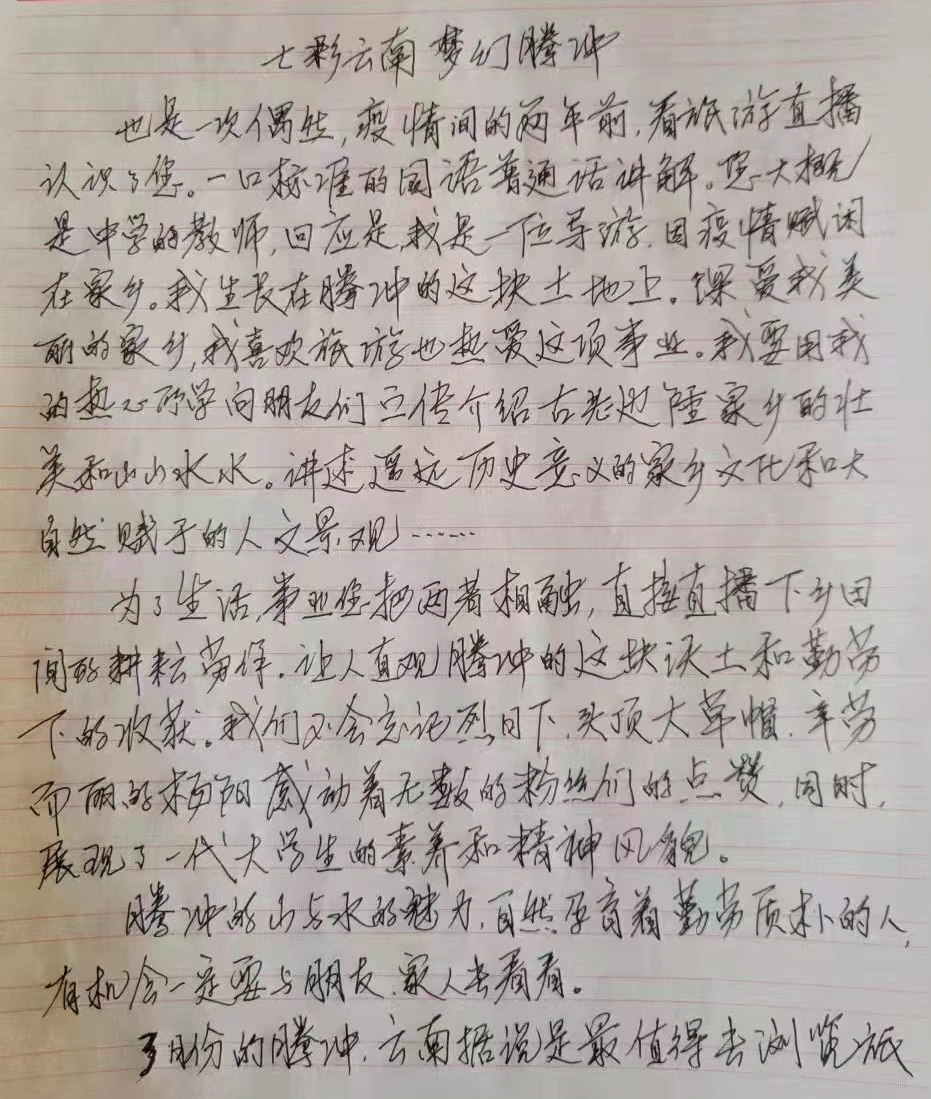 七彩云南梦幻腾冲
也是一次偶然,疫情间的两年前,看旅游直播
认识了您。一口标准的国语普通话讲解。您大概
是中学的教师,回应是,我是一位导游.因疫情赋闲
在家乡。我生长在腾冲的这块土地上。深爱我美
丽的家乡,我喜欢旅游也热爱这项事业。我要用我
的热心所学向朋友们宣传介绍古老边陲家乡的壮
美和山山水水。讲述遥远历史意义的家乡文化和大
自然赋予的人文景观……
为了生活,事业您把两者相融,直接直播下乡田
间的耕耘劳作.让人直观腾冲的这块沃土和勤劳
下的收获。我们不会忘记烈日下.头顶大草帽.辛劳
而丽的 感动着无数的粉丝们的点赞,同时,
展现了一代大学生的素养和精神风貌。
腾冲的山与水的魅力,自然孕育着勤劳质朴的人,
有机会一定要与朋友.家人去看看。
3月份的腾冲.云南据说是最值得去浏览旅